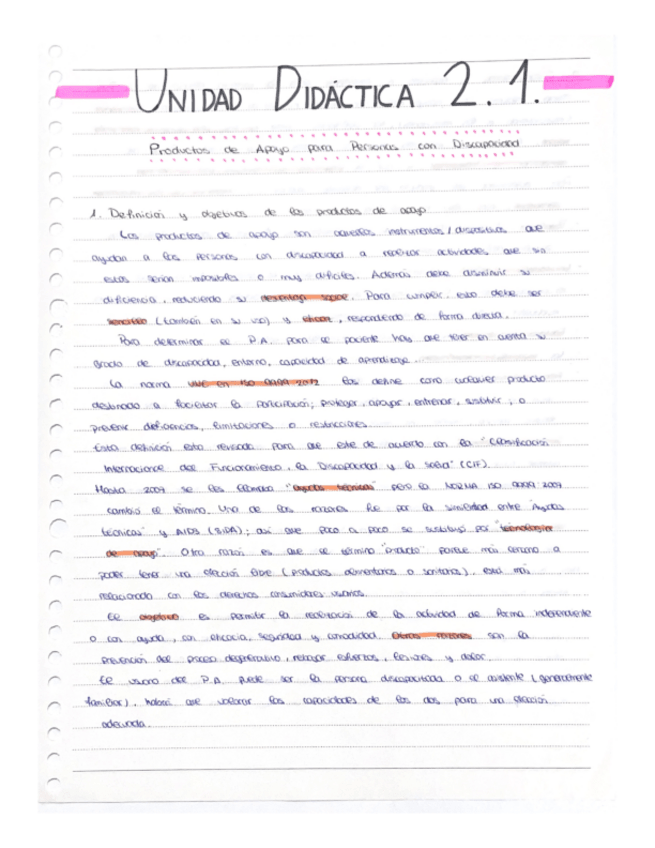 UNIDAD DIDÁCTICA 2.1.
Productos de Apoyo para Personas con Discapacidad
1. Definición y objetivos de los productos de apoyo
Los productos de apoyo son aquellos instrumentos / dispositivos que
ayudan a las personas con discapacidad a realizar actividades, que sin
estos serían imposibles o muy difíciles. Además debe disminuir su
deficiencia, reduciendo su desventaja social. Para cumplir, esto debe ser
sencillo (también en su uso) y eficaz, respondiendo de forma directa.
Para determinar el P.A. para el paciente hay que tener en cuenta su
grado de discapacidad, entorno, capacidad de aprendizaje.
La norma UNE EN ISO 9999 2012 los define como cualquier producto
destinado a facilitar la participación; proteger, apoyar, entrenar, sustituir, o
prevenir deficiencias, limitaciones o restricciones.
Esta definición esta revisada para que este de acuerdo con la "Clasificación
Internacional del Funcionamiento, la Discapacidad y la Salud" (CIF).
Hasta 2007 se les llamaba "ayudas técnicas" pero la NORMA ISO 9999 2007
cambió el término. Una de las razones fue por la similitud entre "Ayudas
técnicas" y AIDS (SIDA); así que poco a poco se sustituyó por "tecnologías
de apoyo". Otra razón es que el término "producto" porque más cercano a
poder tener una elección libre (productos alimentarios o sanitarios), está más
relacionada con los derechos consumidores usuarios.
El objetivo es permitir la realización de la actividad de forma independiente
o con ayuda, con eficacia, seguridad y comodidad. Otras razones son la
prevención del proceso degenerativo, rebajar esfuerzos, lesiones y dolor.
El usuario del P.A. puede ser la persona discapacitada o el asistente (generalmente
familiar), habrá que valorar las capacidades de los dos para una elección
adecuada.